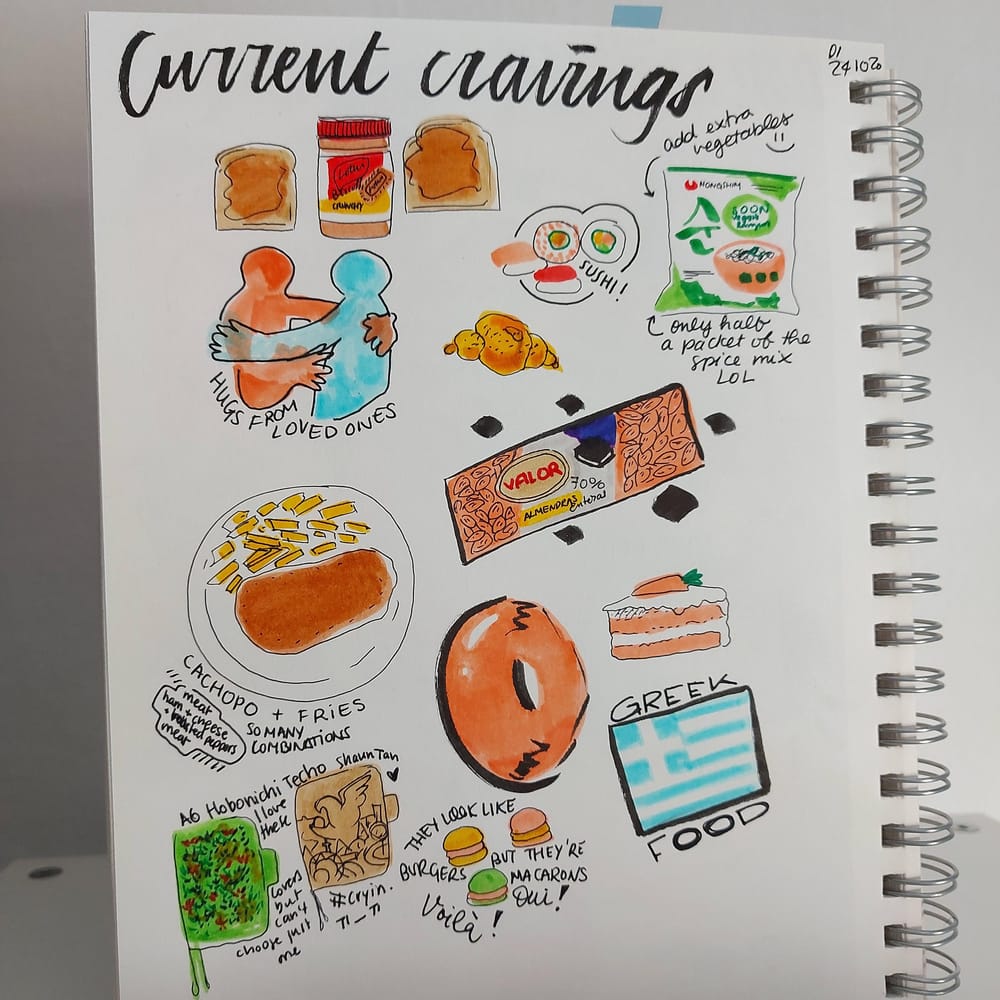 Current cravings
D1
241020
add extra
vegetables
Lotus
Biscoff
CRUNCHY
NONGSHIM
순
SOON
Veggie
Ramyun
SUSHI!
only half
a packet of the
spice mix
LOL
HUGS FROM
LOVED ONES
VALOR
70%
ALMENDRAS
enteras
CACHOPO + FRIES
SO MANY
COMBINATIONS
meat
ham + cheese
+ roasted peppers
meat
GREEK
FOOD
A6 Hobonichi Techo Shaun Tan
I love
these
covers
but
can't
choose just
one
#cryin.
TI_TI
THEY LOOK LIKE
BURGERS
BUT THEY'RE
MACARONS
Voilà!
Oui!